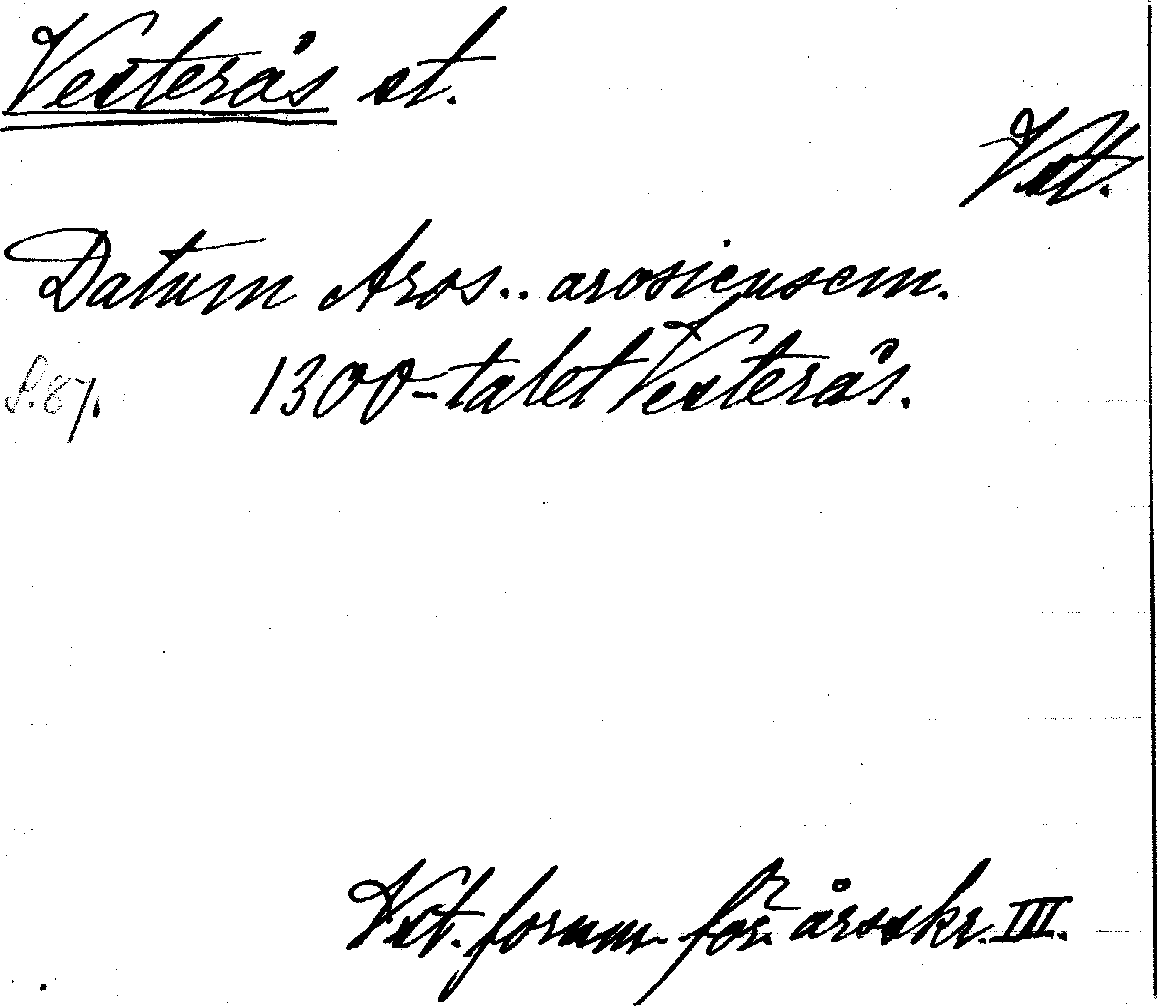 Vesterås st.
Vst.
Datum Aros.. arosiensem.
S. 87. 1300-talet Vesterås.
Vst. fornm. för. årsskr. III.